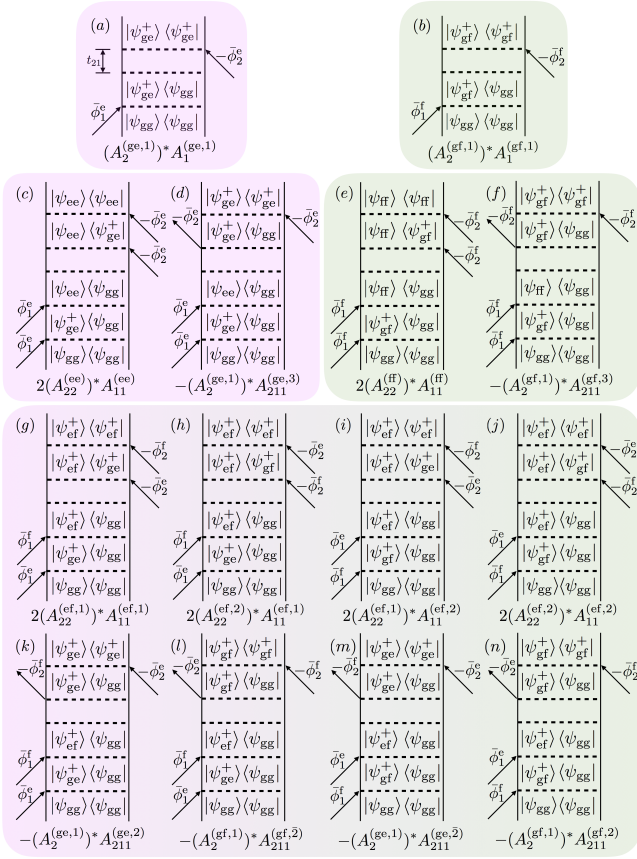 (a)
|ψ_ge^+⟩ ⟨ψ_ge^+|
t_21
−φ̄_2^e
|ψ_ge^+⟩ ⟨ψ_gg|
φ̄_1^e
|ψ_gg⟩ ⟨ψ_gg|
(A_2^(ge,1))* A_1^(ge,1)
(b)
|ψ_gf^+⟩ ⟨ψ_gf^+|
−φ̄_2^f
|ψ_gf^+⟩ ⟨ψ_gg|
φ̄_1^f
|ψ_gg⟩ ⟨ψ_gg|
(A_2^(gf,1))* A_1^(gf,1)
(c)
|ψ_ee⟩⟨ψ_ee|
−φ̄_2^e
|ψ_ee⟩⟨ψ_ge^+|
−φ̄_2^e
|ψ_ee⟩⟨ψ_gg|
φ̄_1^e
|ψ_ge^+⟩⟨ψ_gg|
φ̄_1^e
|ψ_gg⟩⟨ψ_gg|
2(A_22^(ee))* A_11^(ee)
(d)
|ψ_ge^+⟩⟨ψ_ge^+|
−φ̄_2^e
−φ̄_2^e
|ψ_ge^+⟩⟨ψ_gg|
|ψ_ee⟩⟨ψ_gg|
φ̄_1^e
|ψ_ge^+⟩⟨ψ_gg|
φ̄_1^e
|ψ_gg⟩⟨ψ_gg|
−(A_2^(ge,1))* A_211^(ge,3)
(e)
|ψ_ff⟩ ⟨ψ_ff|
−φ̄_2^f
|ψ_ff⟩ ⟨ψ_gf^+|
−φ̄_2^f
|ψ_ff⟩ ⟨ψ_gg|
φ̄_1^f
|ψ_gf^+⟩ ⟨ψ_gg|
φ̄_1^f
|ψ_gg⟩ ⟨ψ_gg|
2(A_22^(ff))* A_11^(ff)
(f)
|ψ_gf^+⟩ ⟨ψ_gf^+|
−φ̄_2^f
−φ̄_2^f
|ψ_gf^+⟩ ⟨ψ_gg|
|ψ_ff⟩ ⟨ψ_gg|
φ̄_1^f
|ψ_gf^+⟩ ⟨ψ_gg|
φ̄_1^f
|ψ_gg⟩ ⟨ψ_gg|
−(A_2^(gf,1))* A_211^(gf,3)
(g)
|ψ_ef^+⟩ ⟨ψ_ef^+|
−φ̄_2^f
|ψ_ef^+⟩ ⟨ψ_ge^+|
−φ̄_2^e
|ψ_ef^+⟩ ⟨ψ_gg|
φ̄_1^f
|ψ_ge^+⟩ ⟨ψ_gg|
φ̄_1^e
|ψ_gg⟩ ⟨ψ_gg|
2(A_22^(ef,1))* A_11^(ef,1)
(h)
|ψ_ef^+⟩ ⟨ψ_ef^+|
−φ̄_2^e
|ψ_ef^+⟩ ⟨ψ_gf^+|
−φ̄_2^f
|ψ_ef^+⟩ ⟨ψ_gg|
φ̄_1^f
|ψ_ge^+⟩ ⟨ψ_gg|
φ̄_1^e
|ψ_gg⟩ ⟨ψ_gg|
2(A_22^(ef,2))* A_11^(ef,1)
(i)
|ψ_ef^+⟩ ⟨ψ_ef^+|
−φ̄_2^f
|ψ_ef^+⟩ ⟨ψ_ge^+|
−φ̄_2^e
|ψ_ef^+⟩ ⟨ψ_gg|
φ̄_1^e
|ψ_gf^+⟩ ⟨ψ_gg|
φ̄_1^f
|ψ_gg⟩ ⟨ψ_gg|
2(A_22^(ef,1))* A_11^(ef,2)
(j)
|ψ_ef^+⟩ ⟨ψ_ef^+|
−φ̄_2^e
|ψ_ef^+⟩ ⟨ψ_gf^+|
−φ̄_2^f
|ψ_ef^+⟩ ⟨ψ_gg|
φ̄_1^e
|ψ_gf^+⟩ ⟨ψ_gg|
φ̄_1^f
|ψ_gg⟩ ⟨ψ_gg|
2(A_22^(ef,2))* A_11^(ef,2)
(k)
|ψ_ge^+⟩ ⟨ψ_ge^+|
−φ̄_2^f
−φ̄_2^e
|ψ_ge^+⟩ ⟨ψ_gg|
|ψ_ef^+⟩ ⟨ψ_gg|
φ̄_1^f
|ψ_ge^+⟩ ⟨ψ_gg|
φ̄_1^e
|ψ_gg⟩ ⟨ψ_gg|
−(A_2^(ge,1))* A_211^(ge,2)
(l)
|ψ_gf^+⟩ ⟨ψ_gf^+|
−φ̄_2^e
−φ̄_2^f
|ψ_gf^+⟩ ⟨ψ_gg|
|ψ_ef^+⟩ ⟨ψ_gg|
φ̄_1^f
|ψ_ge^+⟩ ⟨ψ_gg|
φ̄_1^e
|ψ_gg⟩ ⟨ψ_gg|
−(A_2^(gf,1))* A_211^(gf,2̄)
(m)
|ψ_ge^+⟩ ⟨ψ_ge^+|
−φ̄_2^f
−φ̄_2^e
|ψ_ge^+⟩ ⟨ψ_gg|
|ψ_ef^+⟩ ⟨ψ_gg|
φ̄_1^e
|ψ_gf^+⟩ ⟨ψ_gg|
φ̄_1^f
|ψ_gg⟩ ⟨ψ_gg|
−(A_2^(ge,1))* A_211^(ge,2̄)
(n)
|ψ_gf^+⟩ ⟨ψ_gf^+|
−φ̄_2^e
−φ̄_2^f
|ψ_gf^+⟩ ⟨ψ_gg|
|ψ_ef^+⟩ ⟨ψ_gg|
φ̄_1^e
|ψ_gf^+⟩ ⟨ψ_gg|
φ̄_1^f
|ψ_gg⟩ ⟨ψ_gg|
−(A_2^(gf,1))* A_211^(gf,2)